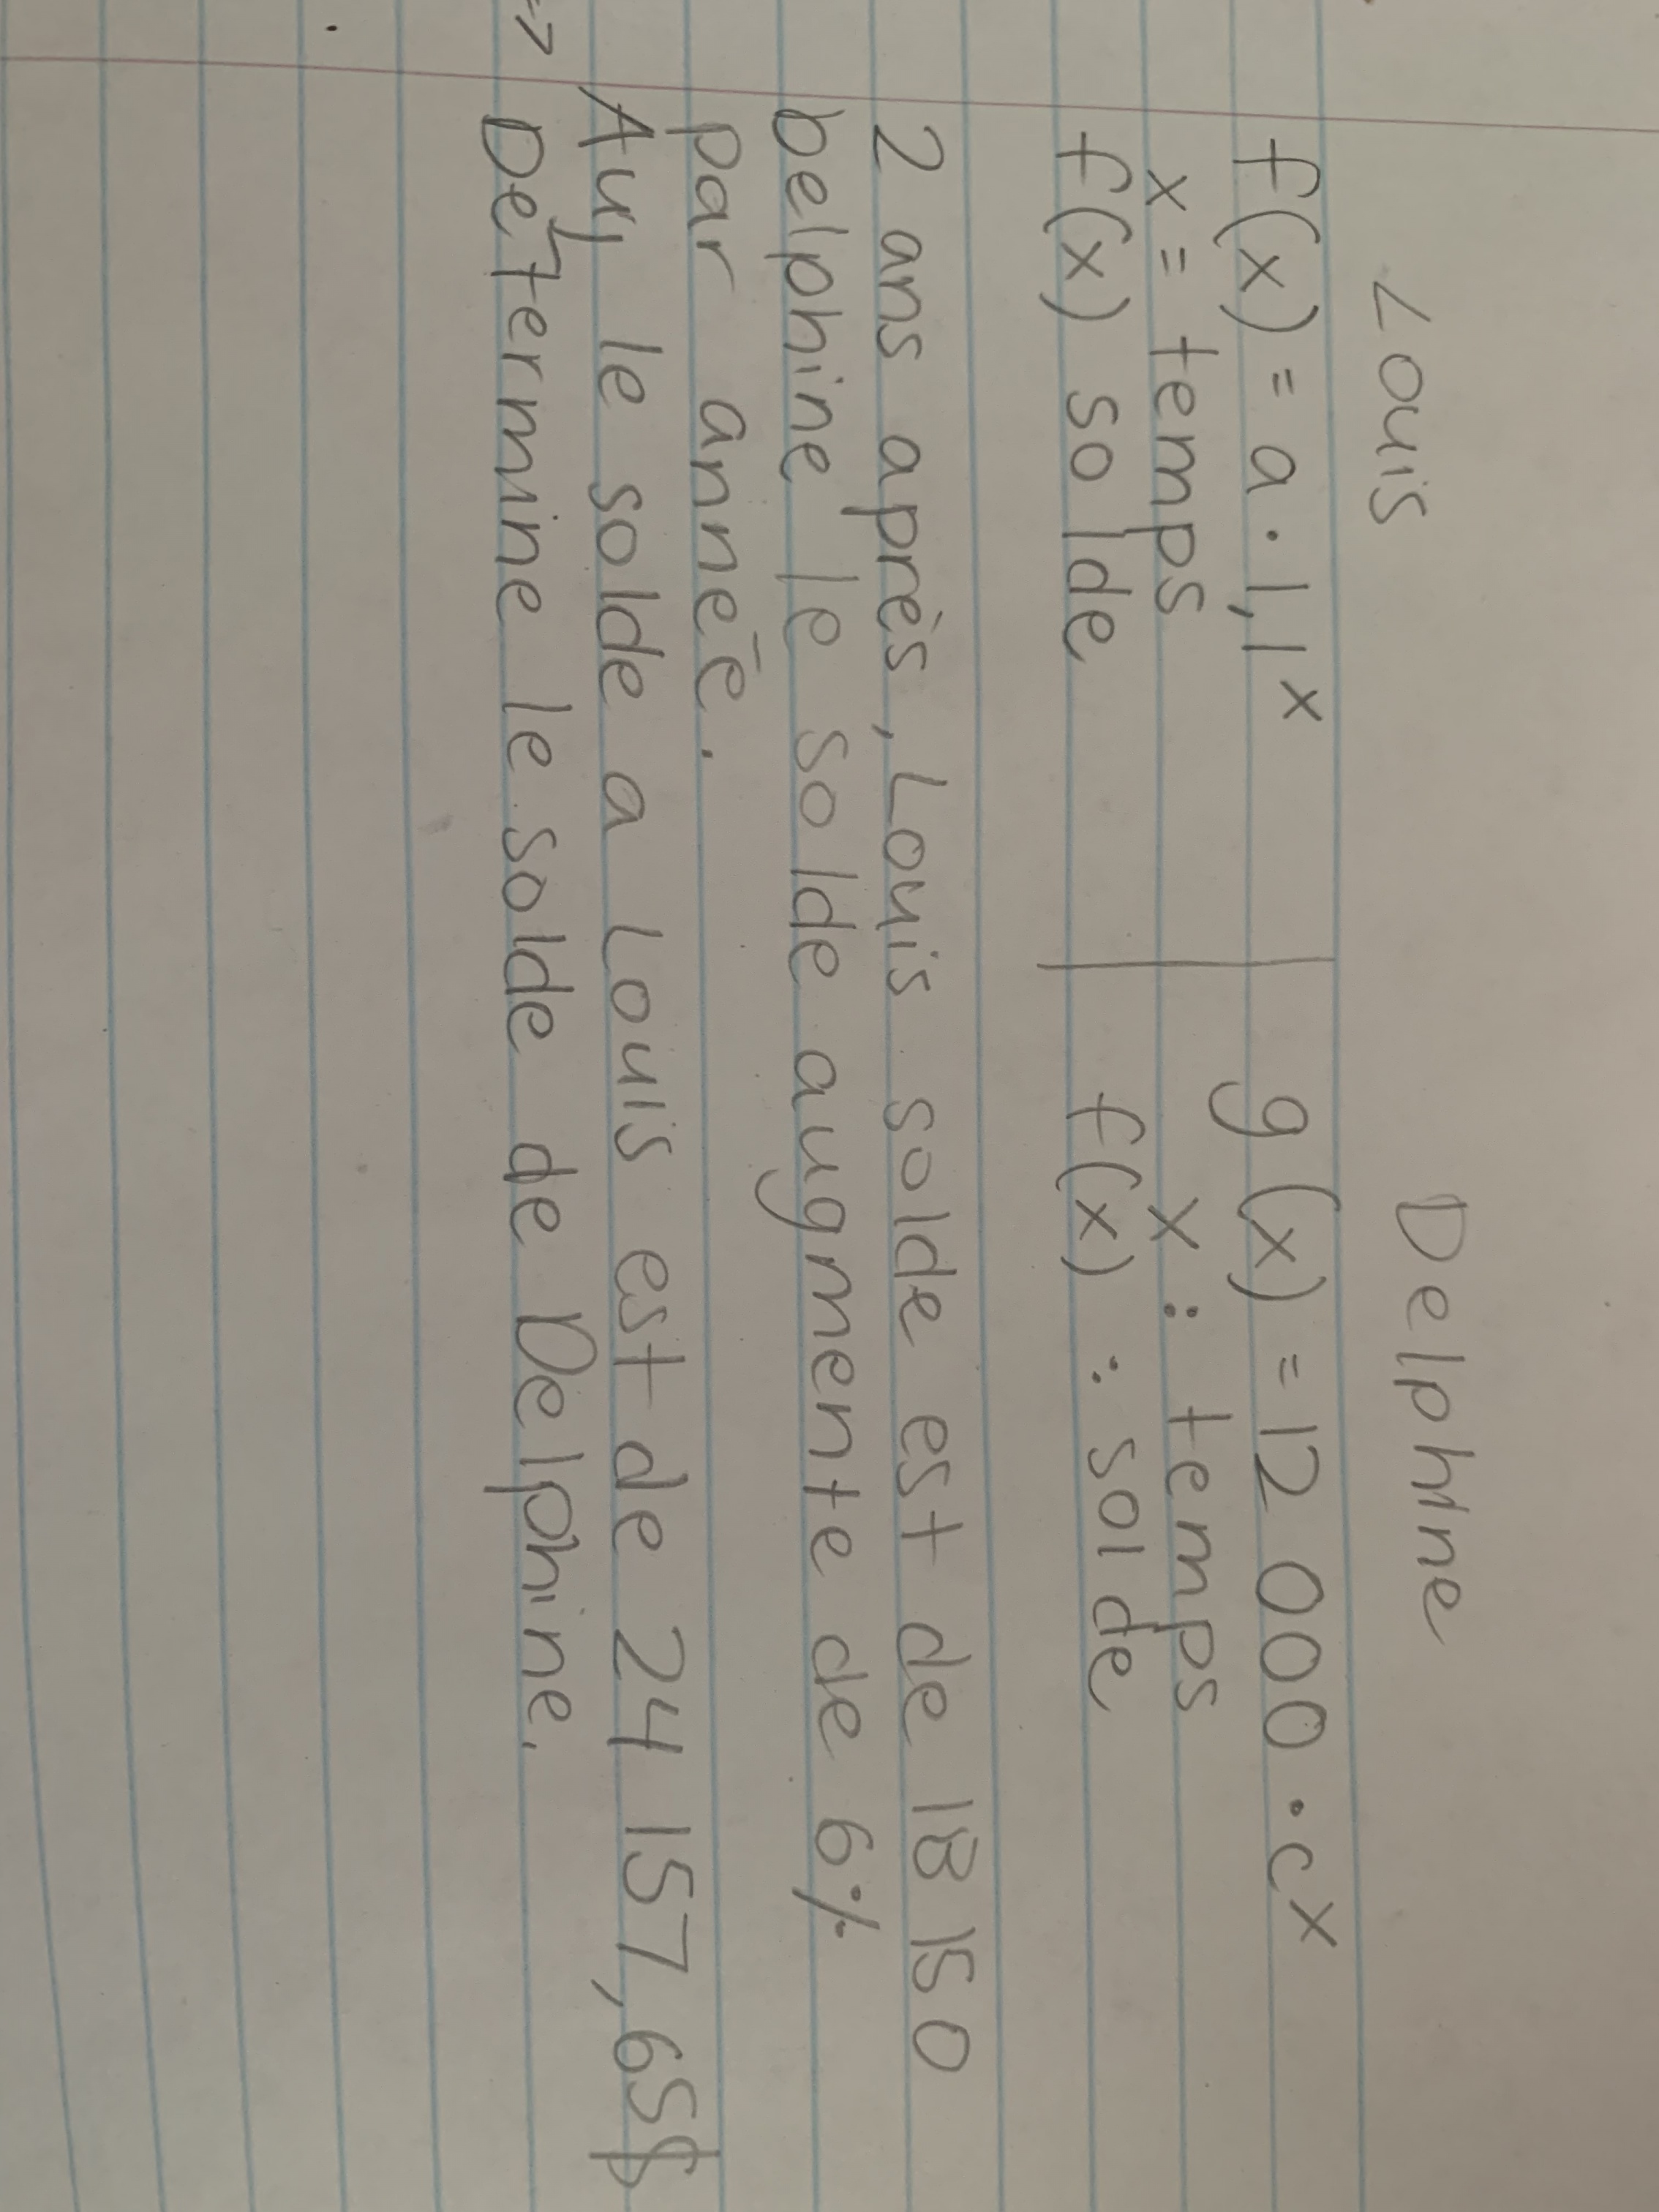 Louis Delphine
f(x) = a · 1,1^x g(x) = 12 000 · c^x
x = temps x : temps
f(x) solde f(x) : solde
2 ans après, Louis solde est de 18 150
Delphine le solde augmente de 6%
par année.
Auj, le solde a Louis est de 24 157,65$
=> Determine le solde de Delphine.